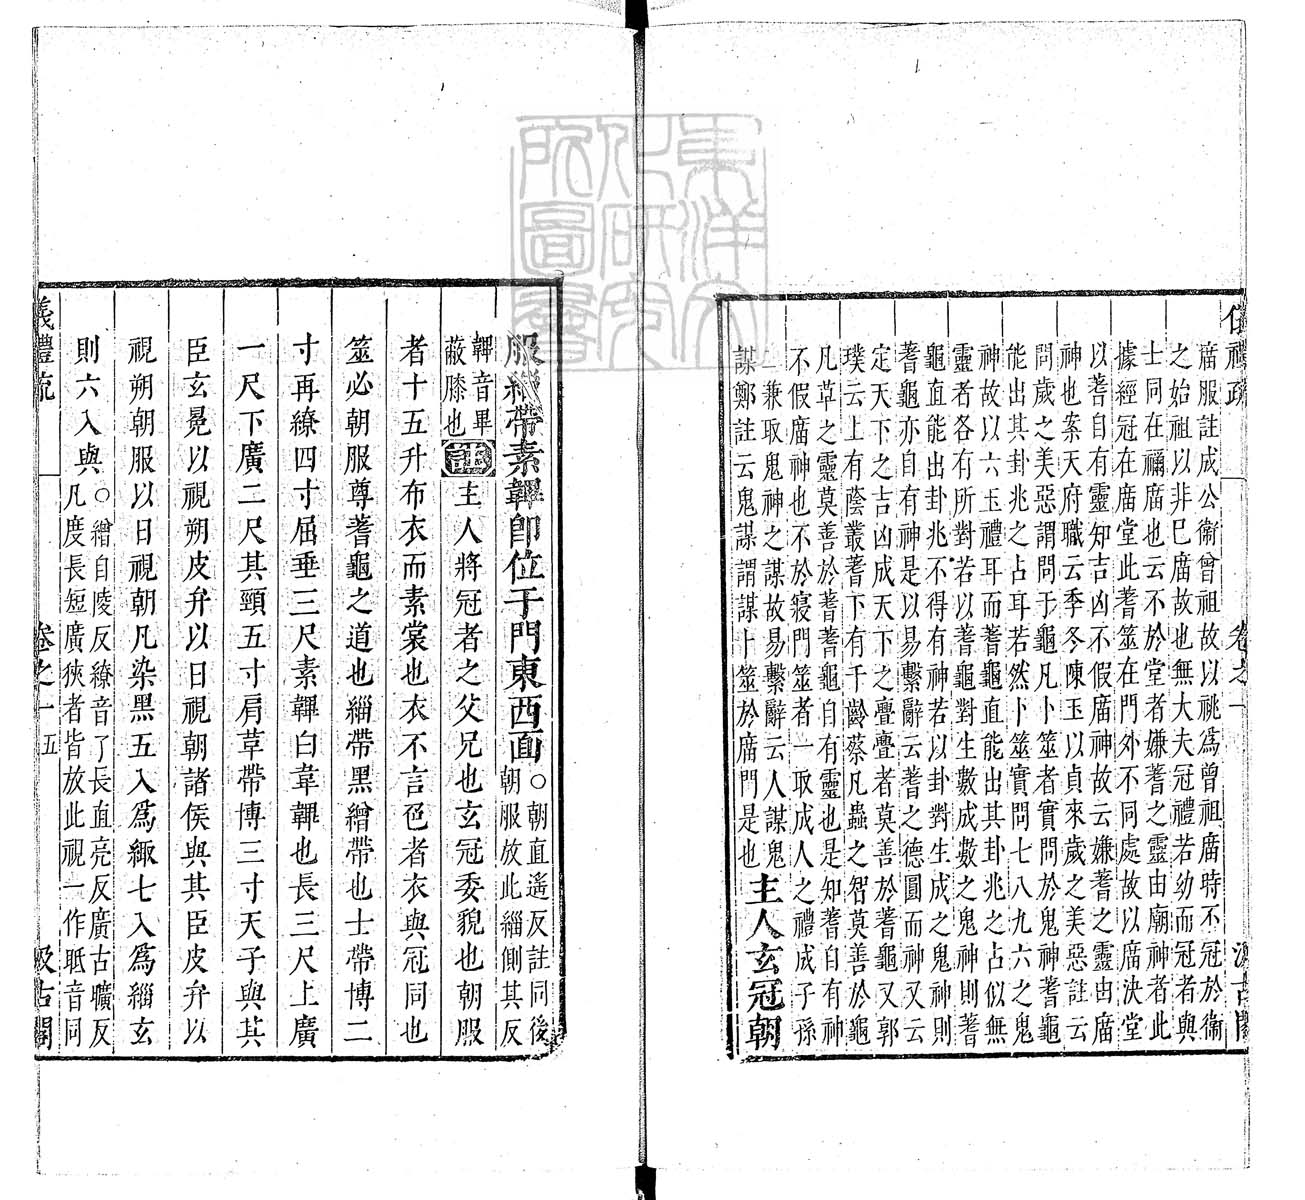 儀禮疏 卷之一 汲古閣
廣服註成公衞曾祖故以祧爲曾祖廣時不冠於衞
之始祖以非已廣故也無大夫冠禮若幼而冠者與
士同在禰廣也云不於堂者嫌蓍之靈由廟神者此
據經冠在廣堂此蓍筮在門外不同處故以廣決堂
以蓍自有靈知吉凶不假廣神故云嫌蓍之靈由廣
神也案天府職云季冬陳玉以貞來歲之美惡註云
問歲之美惡謂問于龜凡卜筮者實問於鬼神蓍龜
能出其卦兆之占耳若然卜筮實問七八九六之鬼
神故以六玉禮耳而蓍龜直能出其卦兆之占似無
靈者各有所對若以蓍龜對生數成數之鬼神則蓍
龜直能出卦兆不得有神若以卦對生成之鬼神則
蓍龜亦自有神是以易繫辭云蓍之德圓而神又云
定天下之吉凶成天下之亹亹者莫善於蓍龜又郭
璞云上有蔭叢蓍下有千齡蔡凡蟲之智莫善於龜
凡草之靈莫善於蓍蓍龜自有靈也是知蓍自有神
不假廣神也不於寢門筮者一取成人之禮成子孫
二兼取鬼神之謀故易繫辭云人謀鬼
謀鄭註云鬼謀謂謀卜筮於廣門是也主人玄冠朝
服緇帶素韠卽位于門東西面○朝直遙反註同後
朝服放此緇側其反
韠音畢
蔽膝也註主人將冠者之父兄也玄冠委貌也朝服
者十五升布衣而素裳也衣不言色者衣與冠同也
筮必朝服尊蓍龜之道也緇帶黑繒帶也士帶博二
寸再繚四寸屈垂三尺素韠白韋韠也長三尺上廣
一尺下廣二尺其頸五寸肩革帶博三寸天子與其
臣玄冕以視朔皮弁以日視朝諸侯與其臣皮弁以
視朔朝服以日視朝凡染黑五入爲緅七入爲緇玄
則六入與○繒自陵反繚音了長直亮反廣古曠反
凡度長短廣狹者皆放此視一作眡音同
儀禮疏 卷之一 五 汲古閣